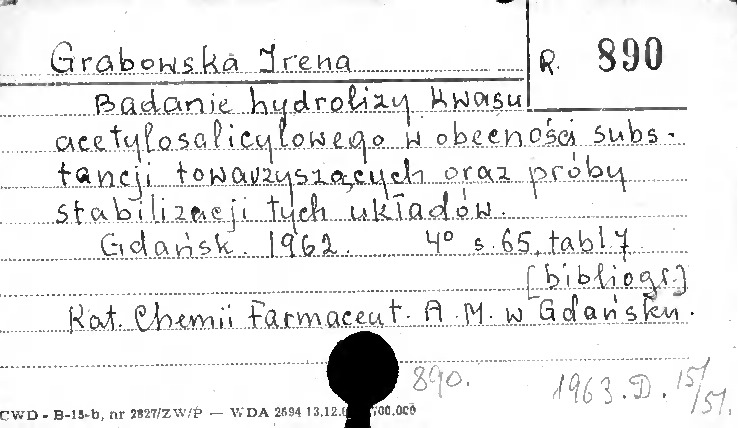 Grabowska Irena
R. 890
Badanie hydrolizy kwasu
acetylosalicylowego w obecności subs-
tancji towarzyszących oraz próby
stabilizacji tych układów.
Gdańsk. 1962. 4° s. 65, tabl 7
[bibliogr.]
Kat. Chemii Farmaceut. A.M. w Gdańsku.
890.
1963.D. 15/51.
CWD - B-15-b, nr 2827/ZW/P — WDA 2694 13.12. 700.000